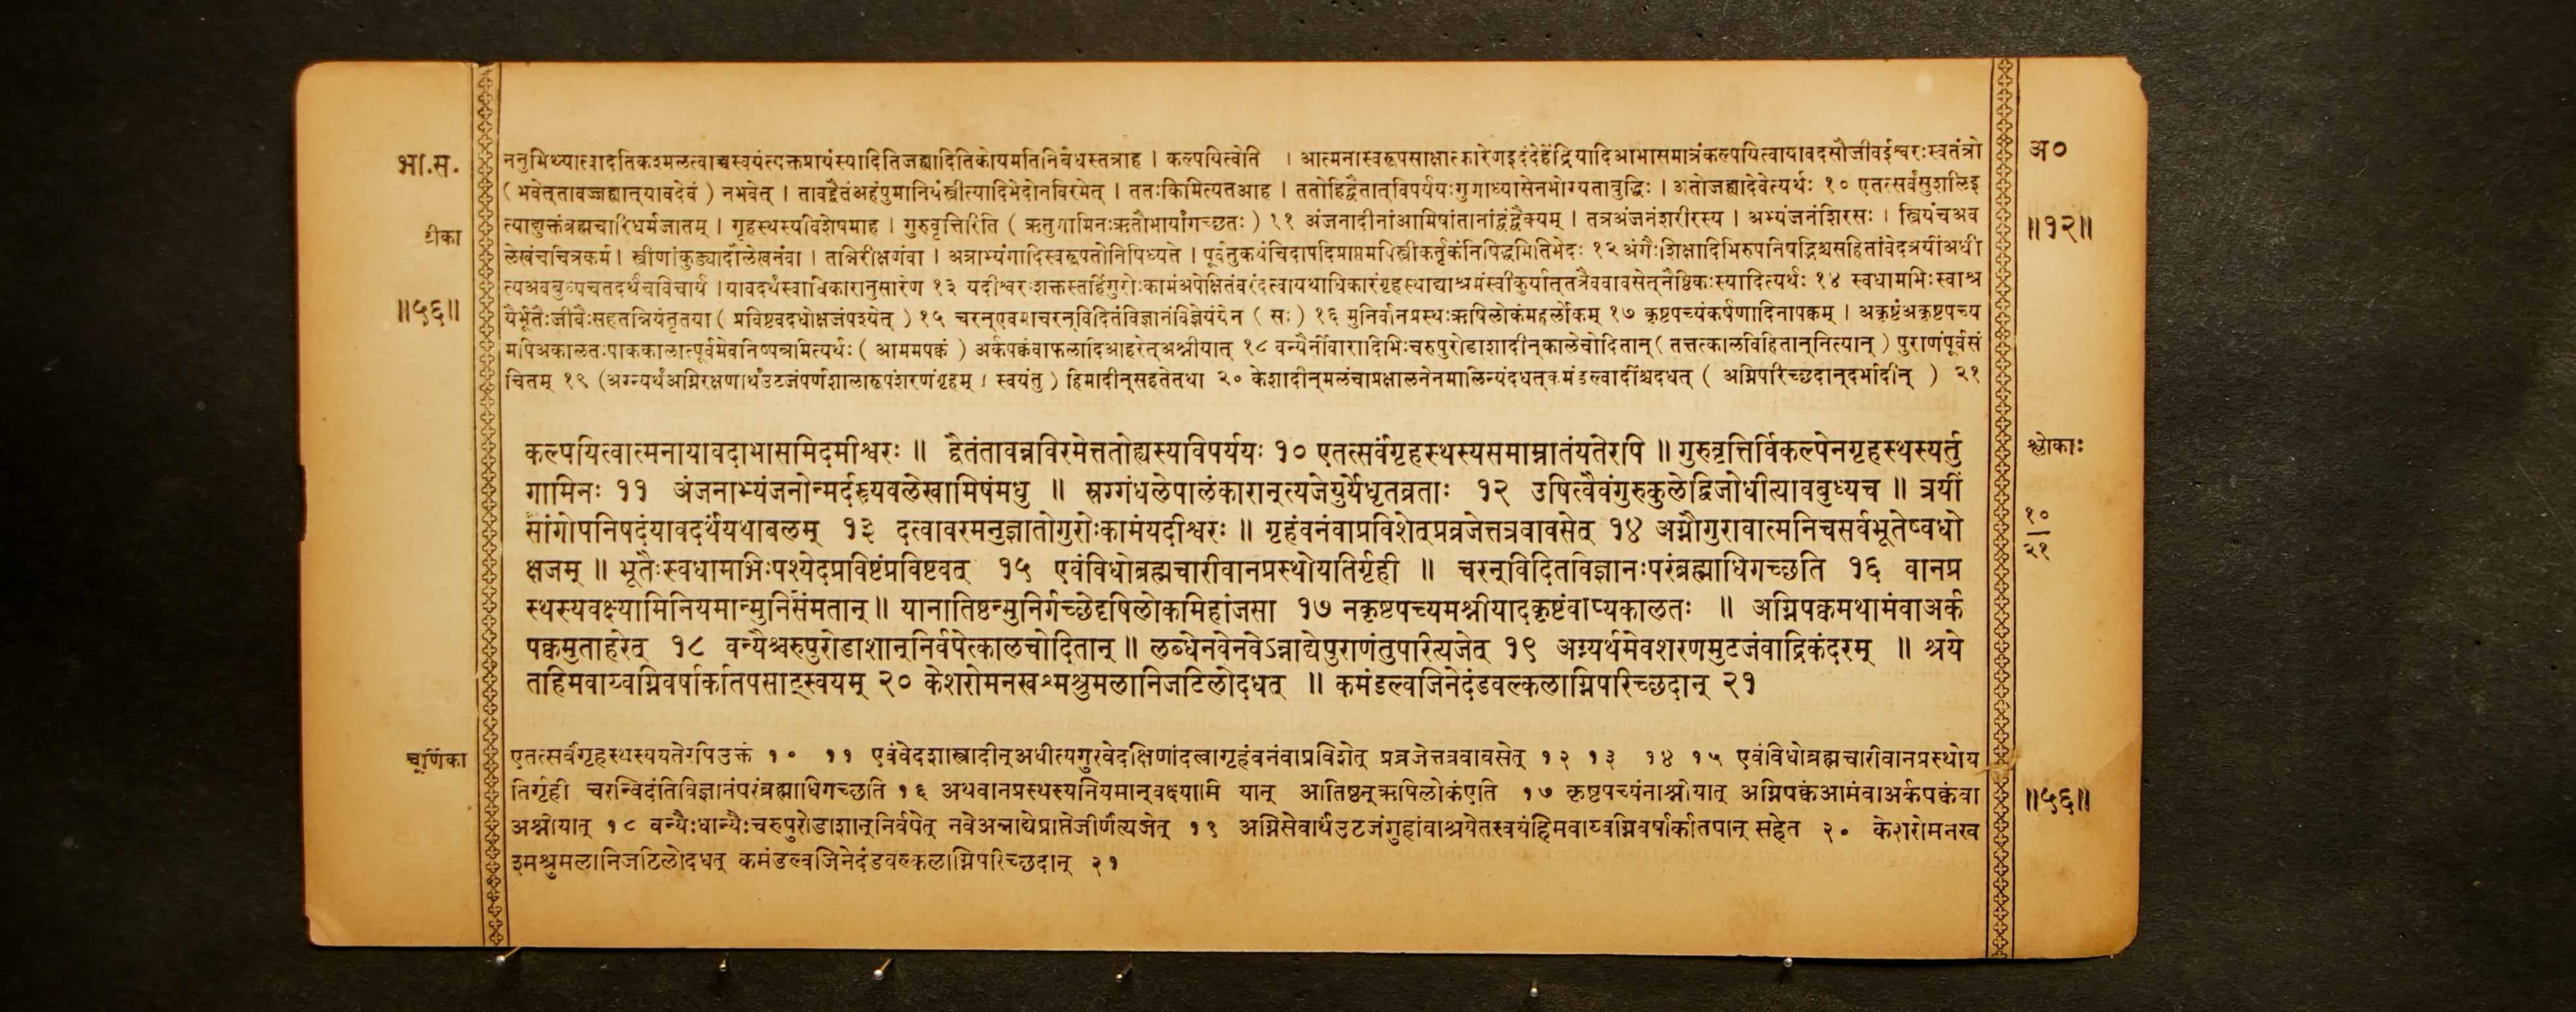 भा.स.
टीका
॥५६॥
ननुमिथ्यात्वादतिकश्मलत्वाच्चस्वयंत्यक्तप्रायंस्यादितिजह्यादितिकोयमतिनिर्बंधस्तत्राह । कल्पयित्वेति । आत्मनास्वरूपसाक्षात्कारेणइदंदेहेंद्रियादिआभासमात्रंकल्पयित्वायावदसौजीवईश्वरःस्वतंत्रो
(भवेत्तावज्जह्यात्यावदेवं) नभवेत् । तावद्वैतंअहंपुमानियंस्त्रीत्यादिभेदोनविरमेत् । ततःकिमित्यतआह । ततोहिद्वैतात्विपर्ययःगुणाध्यासेनभोग्यताबुद्धिः । अतोजह्यादेवेत्यर्थः १० एतत्सर्वंसुशीलइ
त्याद्युक्तंब्रह्मचारिधर्मजातम् । गृहस्थस्यविशेषमाह । गुरुवृत्तिरिति (ऋतुगामिनःऋतौभार्यांगच्छतः) ११ अंजनादीनांआमिषांतानांद्वंद्वैक्यम् । तत्रअंजनंशरीरस्य । अभ्यंजनंशिरसः । स्त्रियंचअव
लेखंचचित्रकर्म । स्त्रीणांकुड्यादौलेखनंवा । तान्निरीक्षणंवा । अत्राभ्यंगादिस्वरूपतोनिषिध्यते । पूर्वंतुकथंचिदापदिप्राप्तमपिस्त्रीकर्तृकंनिषिद्धमितिभेदः १२ अंगैःशिक्षादिभिरुपनिषद्भिश्चसहितांवेदत्रयींअधी
त्यअवबुध्यचतदर्थंचविचार्य । यावदर्थंस्वाधिकारानुसारेण १३ यदीश्वरःशक्तस्तर्हिगुरोःकामंअपेक्षितंवरंदत्वायथाधिकारंगृहस्थाद्याश्रमंस्वीकुर्यात्तत्रैववावसेत्नैष्ठिकःस्यादित्यर्थः १४ स्वधामभिःस्वाश्र
यैर्भूतैःजीवैःसहतन्नियंतृतया (प्रविष्टवदधोक्षजंपश्येत्) १५ चरन्एवमाचरन्विदितंविज्ञानंविज्ञेयंयेन (सः) १६ मुनिर्वानप्रस्थःऋषिलोकंमहर्लोकम् १७ कृष्टपच्यंकर्षणादिनापक्वम् । अकृष्टंअकृष्टपच्य
मपिअकालतःपाककालात्पूर्वमेवनिष्पन्नमित्यर्थः (आममपक्वं) अर्कपक्वंवाफलादिआहरेत्अश्नीयात् १८ वन्यैर्नीवारादिभिःचरुपुरोडाशादीन्कालेचोदितान् (तत्तत्कालविहितान्नित्यान्) पुराणंपूर्वसं
चितम् १९ (अग्न्यर्थंअग्निरक्षणार्थंउटजंपर्णशालारूपंशरणंगृहम् । स्वयंतु) हिमादीन्सहतेतथा २० केशादीन्मलंचाप्रक्षालनेनमालिन्यंदधत्कमंडल्वादींश्चदधत् (अग्निपरिच्छदान्दर्भादीन्) २१
कल्पयित्वात्मनायावदाभासमिदमीश्वरः ॥ द्वैतंतावन्नविरमेत्ततोह्यस्यविपर्ययः १० एतत्सर्वंगृहस्थस्यसमाम्नातंयतेरपि ॥ गुरुवृत्तिर्विकल्पेनगृहस्थस्यर्तु
गामिनः ११ अंजनाभ्यंजनोन्मर्दस्त्र्यवलेखामिषंमधु ॥ स्रग्गंधलेपालंकारान्त्यजेयुर्येधृतव्रताः १२ उषित्वैवंगुरुकुलेद्विजोधीत्यावबुध्यच ॥ त्रयीं
सांगोपनिषदंयावदर्थंयथाबलम् १३ दत्वावरमनुज्ञातोगुरोःकामंयदीश्वरः ॥ गृहंवनंवाप्रविशेत्प्रव्रजेत्तत्रवावसेत् १४ अग्नौगुरावात्मनिचसर्वभूतेष्वधो
क्षजम् ॥ भूतैःस्वधामभिःपश्येदप्रविष्टंप्रविष्टवत् १५ एवंविधोब्रह्मचारीवानप्रस्थोयतिर्गृही ॥ चरन्विदितविज्ञानःपरंब्रह्माधिगच्छति १६ वानप्र
स्थस्यवक्ष्यामिनियमान्मुनिसंमतान् ॥ यानातिष्ठन्मुनिर्गच्छेदृषिलोकमिहांजसा १७ नकृष्टपच्यमश्नीयादकृष्टंवाप्यकालतः ॥ अग्निपक्वमथामंवाअर्क
पक्वमुताहरेत् १८ वन्यैश्चरुपुरोडाशान्निर्वपेत्कालचोदितान् ॥ लब्धेनवेनवेऽन्नाद्येपुराणंतुपरित्यजेत् १९ अग्न्यर्थमेवशरणमुटजंवाद्रिकंदरम् ॥ श्रये
तहिमवाय्वग्निवर्षार्कातपसाट्स्वयम् २० केशरोमनखश्मश्रुमलानिजटिलोदधत् ॥ कमंडल्वजिनेदंडवल्कलाग्निपरिच्छदान् २१
चूर्णिका
एतत्सर्वंगृहस्थस्ययतेरपिउक्तं १० ११ एवंवेदशास्त्रादीन्अधीत्यगुरवेदक्षिणांदत्वागृहंवनंवाप्रविशेत् प्रव्रजेत्तत्रवावसेत् १२ १३ १४ १५ एवंविधोब्रह्मचारीवानप्रस्थोय
तिर्गृही चरन्विदंतिविज्ञानंपरंब्रह्माधिगच्छति १६ अथवानप्रस्थस्यनियमान्वक्ष्यामि यान् आतिष्ठन्ऋषिलोकंएति १७ कृष्टपच्यंनाश्नीयात् अग्निपक्वंआमंवाअर्कपक्वंवा
अश्नीयात् १८ वन्यैःधान्यैःचरुपुरोडाशान्निर्वपेत् नवेअन्नाद्येप्राप्तेजीर्णंत्यजेत् १९ अग्निसेवार्थंउटजंगुहांवाश्रयेतस्वयंहिमवाय्वग्निवर्षार्कातपान् सहेत २० केशरोमनख
श्मश्रुमलानिजटिलोदधत् कमंडल्वजिनेदंडवल्कलाग्निपरिच्छदान् २१
अ०
॥१२॥
श्लोकाः
१०
२१
॥५६॥